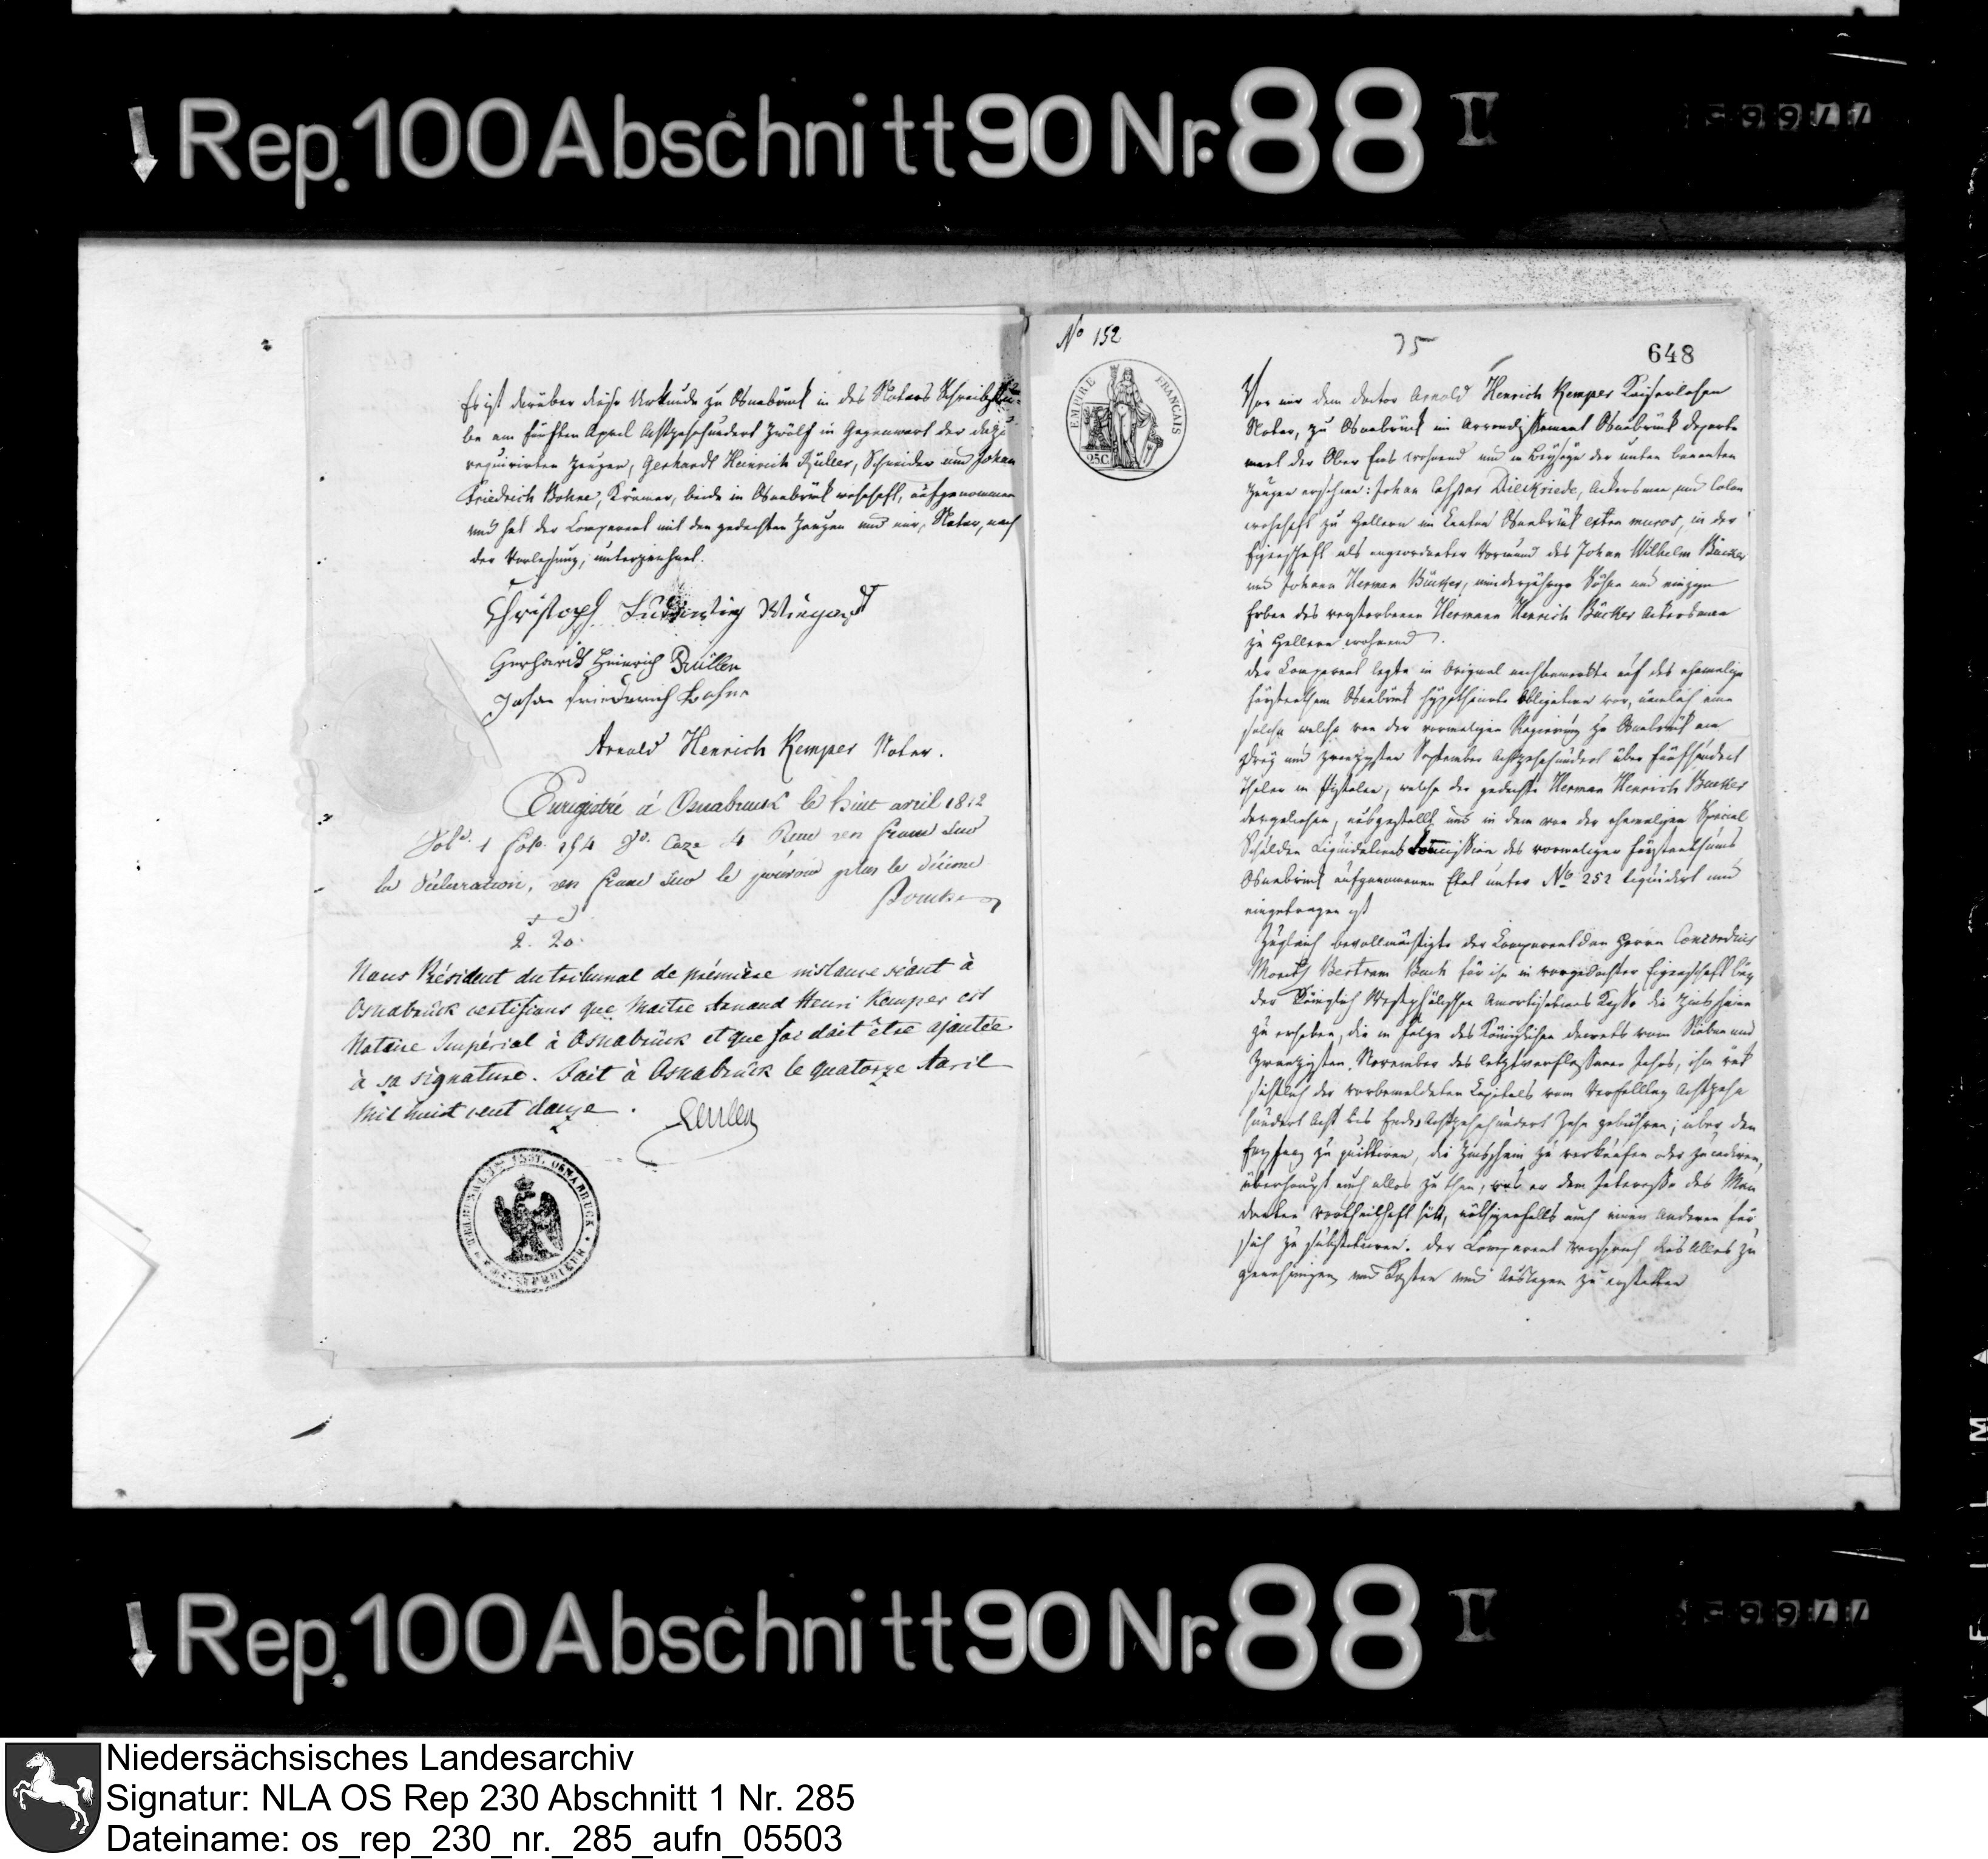 Rep. 100 Abschnitt 90 Nr. 88 I
Es ist darüber diese Urkunde zu Osnabrück in des Notars Schreibstu-
be am fünften April Achtzehnhundert Zwölf in Gegenwart der dazu
requirirten Zeugen, Gerhardt Heinrich Rüller, Schneider und Johan
Friedrich Bohne, Krämer, beide in Osnabrück wohnhaft, aufgenommen
und hat der Comparent mit den gedachten Zeugen und mir, Notar, nach
der Vorlesung, unterzeichnet.
Christoph Ludewig Wiegandt
Gerhardt Heinrich Rüller
Johan Friederich Bohne
Arnold Henrich Kemper Notar.
Enregistré à Osnabruck le huit avril 1812
Vol. 1 fol. 154 Vo. Case 4 Reçu un franc sur
la déclaration, un franc sur le pouvoir plus le décime
2. 20.
Nous Président du tribunal de prémière instance séant à
Osnabrück certifions que Maitre Arnaud Henri Kemper est
Notaire Impérial à Osnabrück et que foi doit être ajoutée
à sa signature. Fait à Osnabrück le quatorze Avril
mil huit cent douze.
No 152
35
648
EMPIRE FRANCAIS
25C
Vor mir dem doctor Arnold Henrich Kemper Kaiserlichen
Notar, zu Osnabrück im Arrondissement Osnabrück departe
ment der Ober Ems wohnend und in Beyseyn der unten benanten
Zeugen erschien: Johan Caspar Dieckriede, Ackersman und Colon
wohnhaft zu Hellern im Canton Osnabrück extra muros, in der
Eigenschaft als angeordneter Vormund des Johan Wilhelm Bücker
und Johann Herman Bücker, minderjährige Söhne und einzigen
Erben des verstorbenen Hermann Henrich Bücker Ackersman
zu Hellern wohnend.
der Comparent legte in Original nachbemerkte auf das ehemalige
Fürstenthum Osnabrück hypothecirte Obligation vor, nämlich eine
solche welche von der vormaligen Regierung zu Osnabrück am
drey und zwanzigsten September Achtzehnhundert über fünfhundert
Thaler in Pistolen, welche der gedachte Herman Henrich Buecker
dargeliehen, ausgestellt und in dem von der ehemaligen Special
Schulden Liquidations Commission des vormaligen Fürstenthums
Osnabrück aufgenommenen Etat unter No 252 liquidirt und
eingetragen ist
Zugleich bevollmächtigte der Comparent den Herrn Concordius
Moritz Bertram Buch für ihn in vorgedachter Eigenschaft bey
der Königlich Westphälischen Amortisations Kasse die Zinsscheine
zu erheben, die in Folge des Königlichen decrets vom Sieben und
Zwanzigsten November des letztverflossenen Jahrs, ihm rück
sichtlich der vorbemeldeten Capitals vom Verfalltag Achtzehn
hundert Acht bis Ende Achtzehnhundert Zehn gebühren; über den
Empfang zu quittiren, die Zinsscheine zu verkaufen oder zu cediren,
überhaupt auch alles zu thun, was er dem Interesse des Man
danten vortheilhaft hält, nöthigenfalls auch einen Anderen für
sich zu substituiren. der Comparent versprach dies Alles zu
genehmigen und Kosten und Auslagen zu erstatten
Rep. 100 Abschnitt 90 Nr. 88 I
Niedersächsisches Landesarchiv
Signatur: NLA OS Rep 230 Abschnitt 1 Nr. 285
Dateiname: os_rep_230_nr._285_aufn_05503